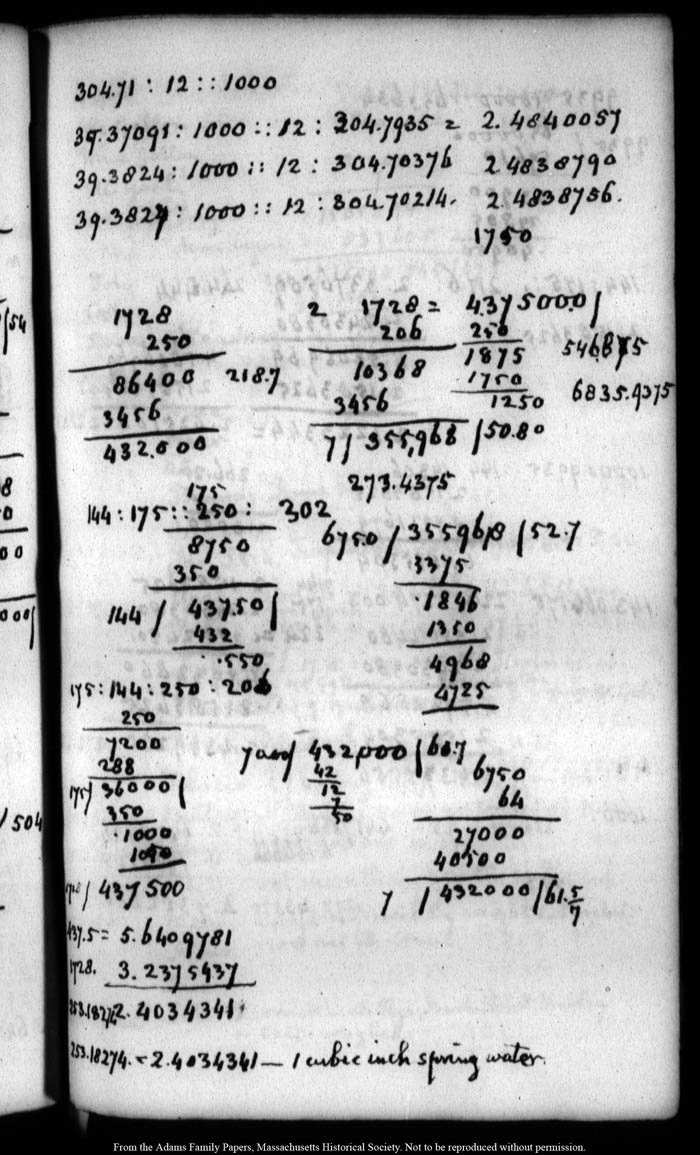 304.71 : 12 :: 1000
39.37091 : 1000 :: 12 : 304.7935 = 2.4840057
39.3824 : 1000 :: 12 : 304.70376 2.4838790
39.3827 : 1000 :: 12 : 304.70214. 2.4838756.
1750
1728
250
86400 218.7
3456
432.000
2 1728 = 4375000/
206 250
10368 1875 546875
3456 1750 6835.9375
1250
7/ 355,968 /50.80
273.4375
175
144 : 175 :: 250 : 302
8750
350
144 / 43750/
432
..550
6750 / 355968 /52.7
3375
1846
1350
4968
4725
175 : 144 : 250 : 206
250
7200
288
175/ 36000/
350
.1000
1050
1728/ 437500
432000 /61.7
42
12
7
50
6750
64
27000
40500
7 / 432000 /61.5/7
437.5 = 5.6409781
1728. 3.2375437
253.18274 2.4034341
253.18274. = 2.4034341 — 1 cubic inch spring water.
From the Adams Family Papers, Massachusetts Historical Society. Not to be reproduced without permission.